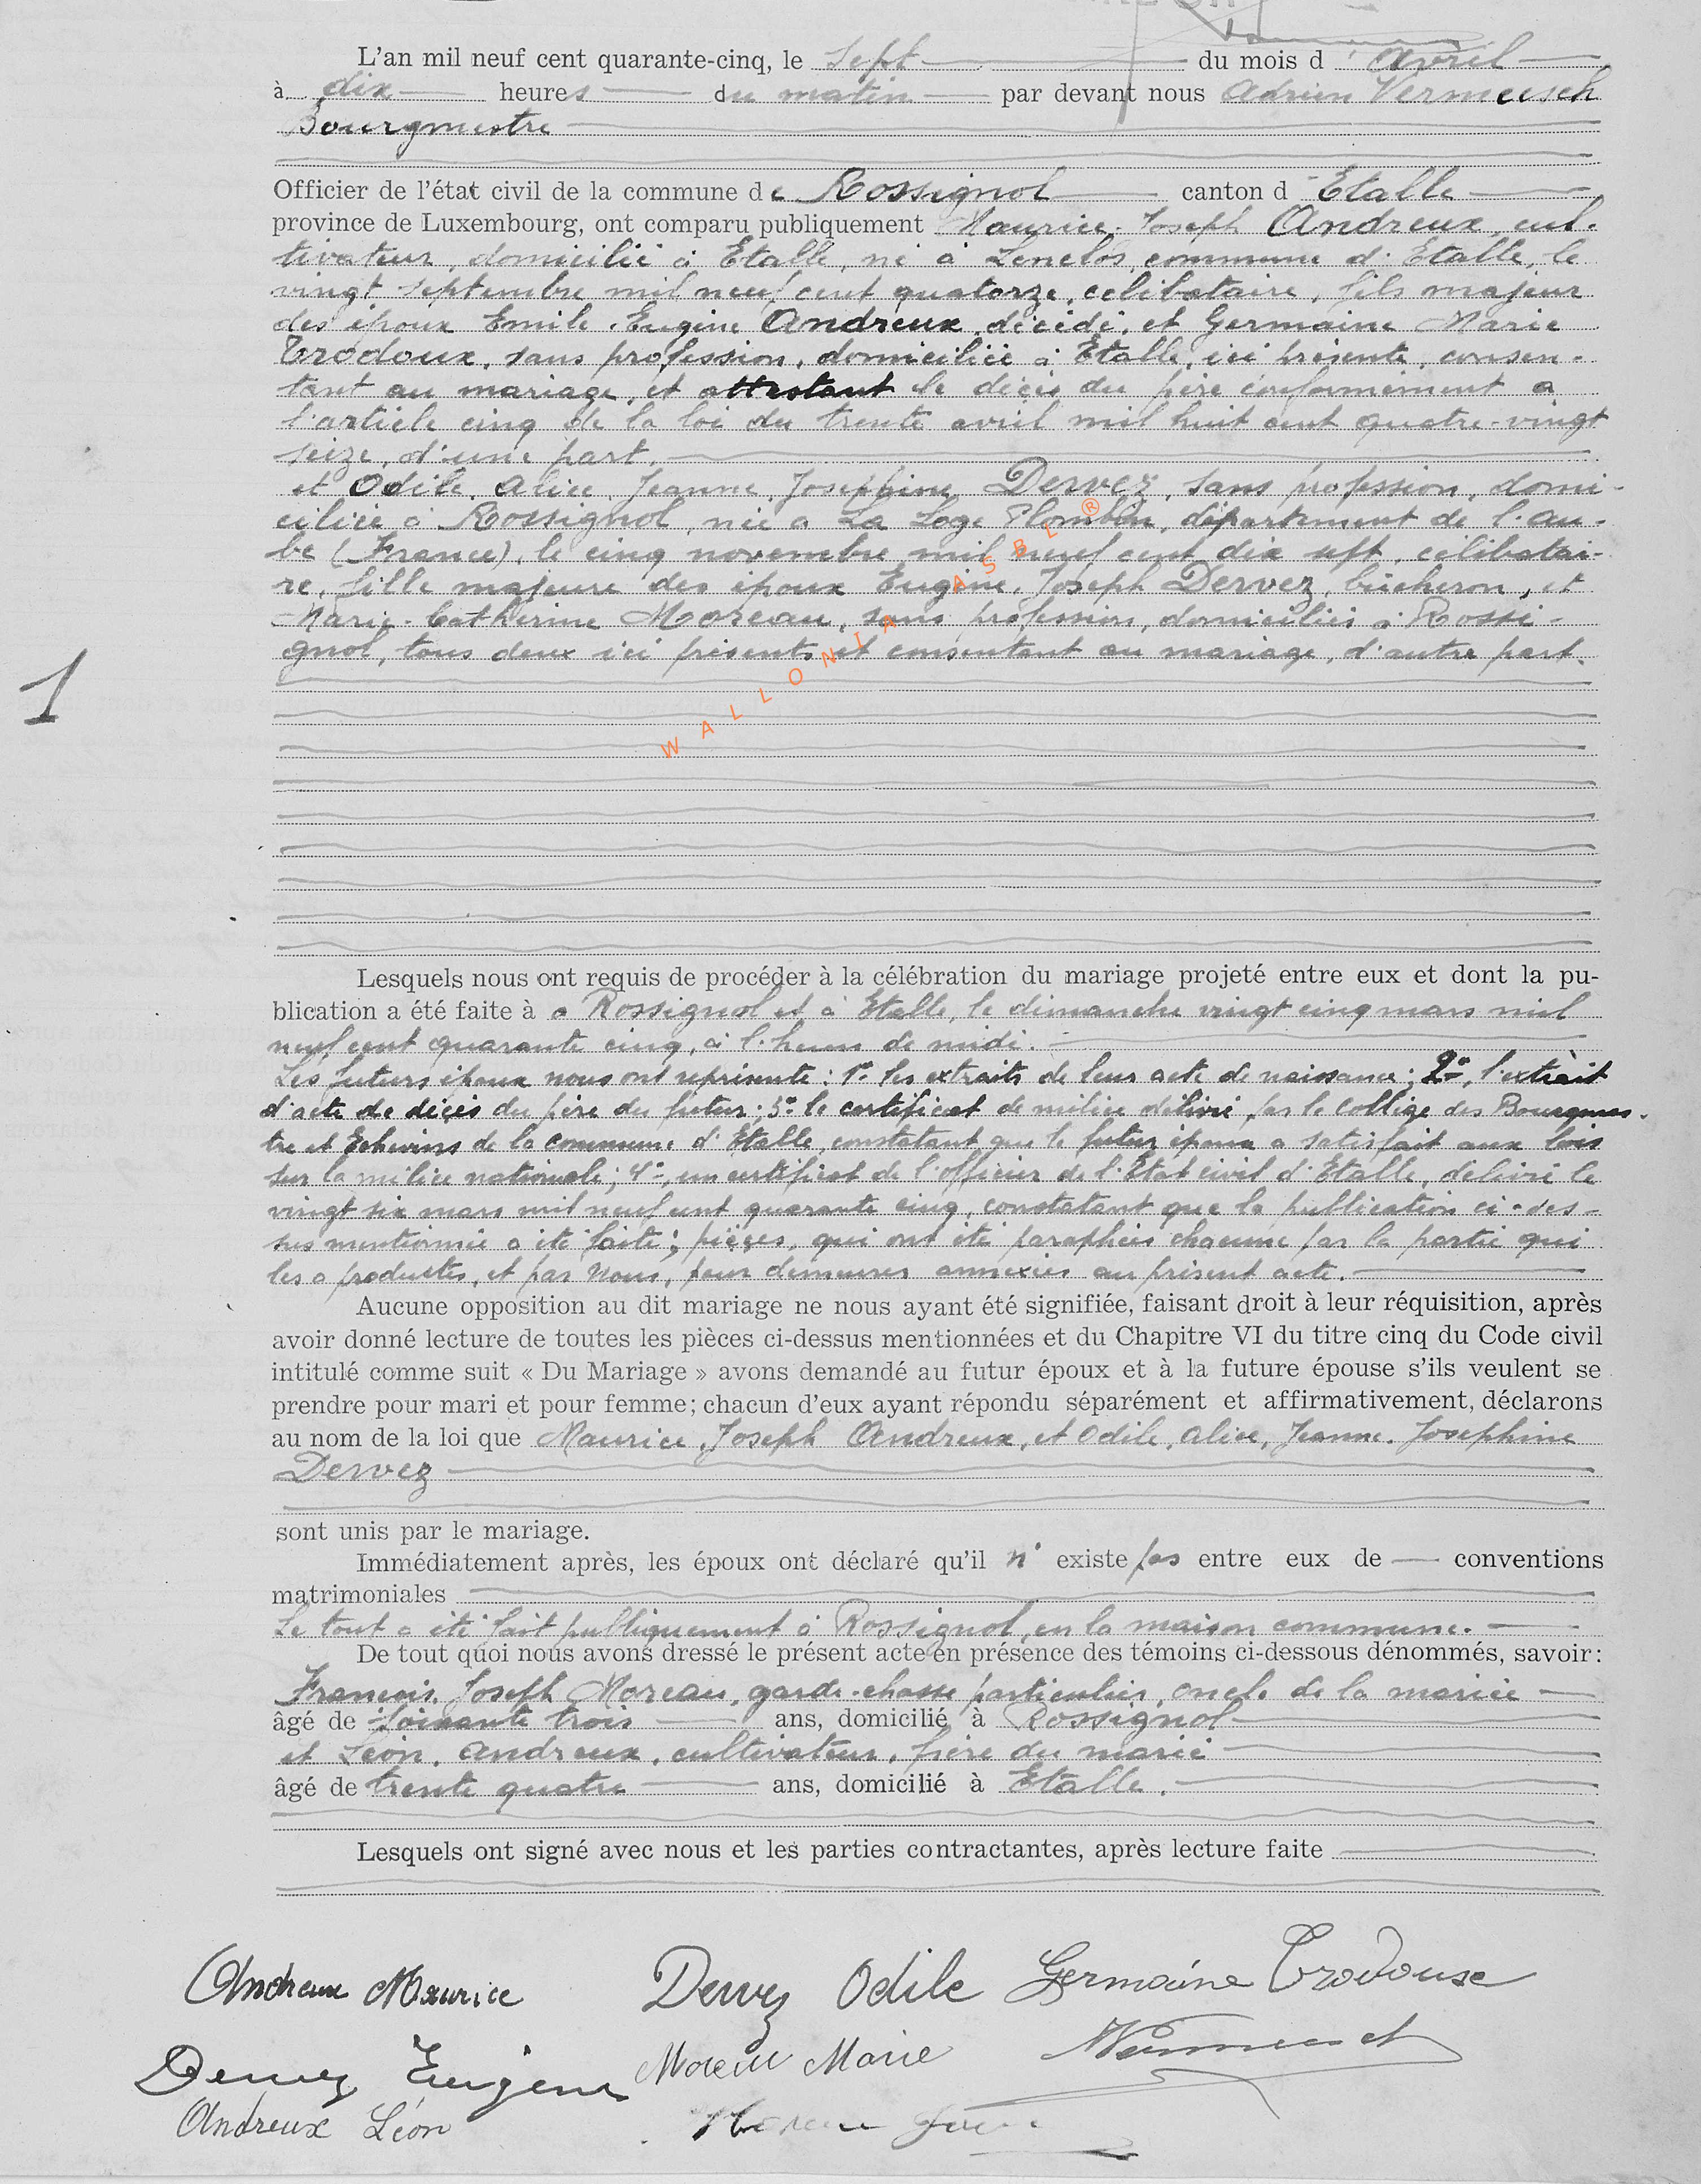 L'an mil neuf cent quarante-cinq, le sept du mois d'avril
à dix heures du matin par devant nous Adrien Vermeesch
Bourgmestre
Officier de l'état civil de la commune de Rossignol canton d'Etalle
province de Luxembourg, ont comparu publiquement Maurice. Joseph Andreux, cul-
tivateur, domicilié à Etalle, né à Lenclos, commune d'Etalle, le
vingt septembre mil neuf cent quatorze, célibataire, fils majeur
des époux Emile. Eugène Andreux, décédé, et Germaine Marie
Trodoux, sans profession, domiciliée à Etalle, ici présente, consen-
tant au mariage, et attestant le décès du père conformément a
l'article cinq de la loi du trente avril mil huit cent quatre-vingt
seize, d'une part.
et Odile, Alice, Jeanne, Joséphine Dervez, sans profession, domi-
ciliée à Rossignol, née a La Loge Plomblin, département de l'Au-
be (France), le cinq novembre mil neuf cent dix sept, célibatai-
re, fille majeure des époux Eugène, Joseph Dervez, bûcheron, et
Marie-Catherine Moreau, sans profession, domiciliés à Rossi-
gnol, tous deux ici présents et consentant au mariage, d'autre part.
1
WALLONIA ASBL ®
Lesquels nous ont requis de procéder à la célébration du mariage projeté entre eux et dont la pu-
blication a été faite à a Rossignol et à Etalle, le dimanche vingt cinq mars mil
neuf cent quarante cinq, à l'heure de midi.
Les futurs époux nous ont représenté : 1° les extraits de leur acte de naissance ; 2°, l'extrait
d'acte de décès du père du futur ; 3° le certificat de milice délivré par le Collège des Bourgmes-
tre et Echevins de la commune d'Etalle, constatant que le futur époux a satisfait aux lois
sur la milice nationale ; 4°, un certificat de l'officier de l'Etat civil d'Etalle, délivré le
vingt six mars mil neuf cent quarante cinq, constatant que la publication ci-des-
sus mentionnée a été faite ; pièces, qui ont été paraphées chacune par la partie qui
les a produites, et par Nous, pour demeurer annexées au présent acte.
Aucune opposition au dit mariage ne nous ayant été signifiée, faisant droit à leur réquisition, après
avoir donné lecture de toutes les pièces ci-dessus mentionnées et du Chapitre VI du titre cinq du Code civil
intitulé comme suit « Du Mariage » avons demandé au futur époux et à la future épouse s'ils veulent se
prendre pour mari et pour femme; chacun d'eux ayant répondu séparément et affirmativement, déclarons
au nom de la loi que Maurice, Joseph Andreux, et Odile, Alice, Jeanne. Joséphine
Dervez
sont unis par le mariage.
Immédiatement après, les époux ont déclaré qu'il n' existe pas entre eux de conventions
matrimoniales
Le tout a été fait publiquement à Rossignol, en la maison commune.
De tout quoi nous avons dressé le présent acte en présence des témoins ci-dessous dénommés, savoir:
François. Joseph Moreau, garde-chasse particulier, oncle de la mariée
âgé de soixante trois ans, domicilié à Rossignol
et Léon, Andreux, cultivateur, frère du marié
âgé de trente quatre ans, domicilié à Etalle.
Lesquels ont signé avec nous et les parties contractantes, après lecture faite
Andreux Maurice Dervez Odile Germaine Trodouse
Dervez Eugène Moreau Marie Vermeesch
Andreux Léon Moreau